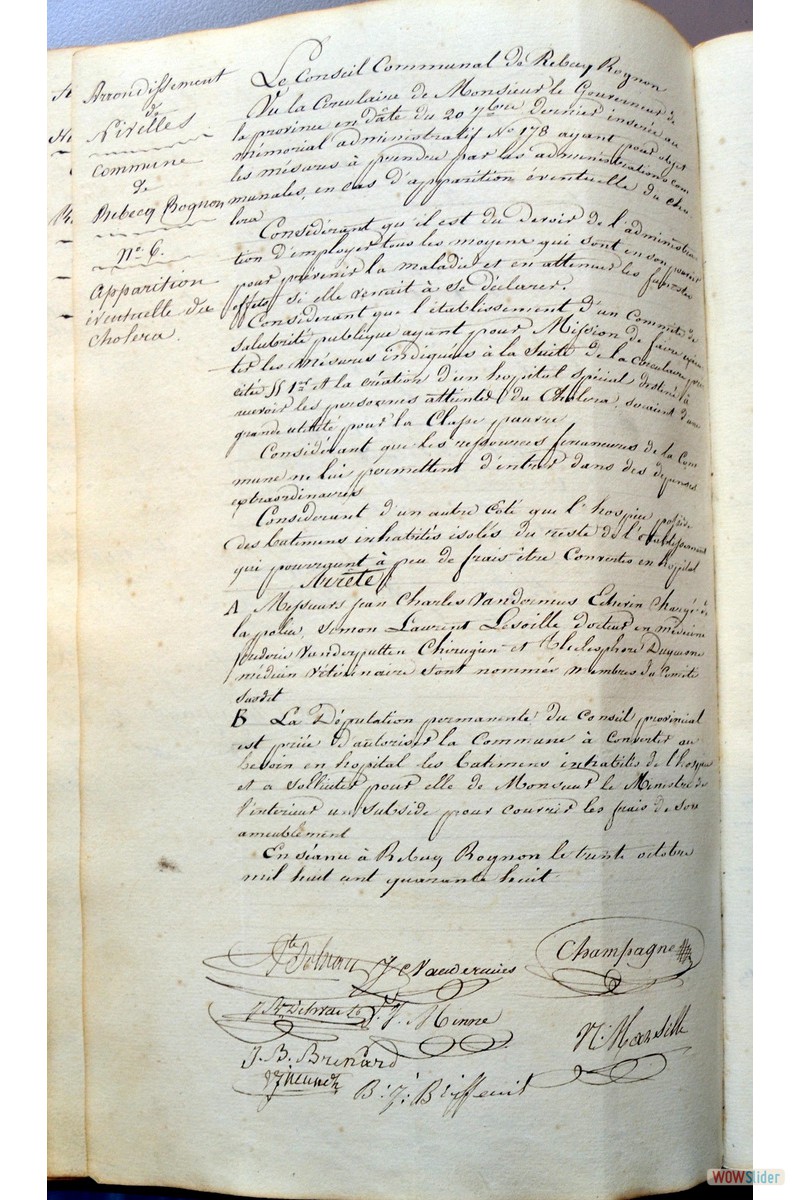 Arrondissement
de
Nivelles
Commune
de
Rebecq Rognon
No. 6.
Apparition
éventuelle du
Choléra.
Le Conseil Communal de Rebecq Rognon
Vu la Circulaire de Monsieur le Gouverneur de
la province en date du 20 7bre dernier inserée au
mémorial administratif No 178 ayant pour objet
les mésures à prendre par les administrations com
munales, en cas d'apparition éventuelle du cho
lera
Considérant qu'il est du devoir de l'administra
tion d'employer tous les moyens qui sont en son pouvoir
pour prévenir la maladie et en attenuer les funestes
effets si elle venait à se déclarer.
Considerant que l'établissement d'un Committé de
salubrité publique ayant pour Mission de faire exécu
ter les mésures indiquées à la suite de la circulaire pré
citée § 1er et la création d'un hopital spécial destiné à
recevoir les personnes attintes du Choléra, seraient d'une
grande utilité pour la Classe pauvre
Considérant que les ressources financieres de la Com
mune ne lui permettent d'entrer dans des depenses
extraordinaires
Considerant d'un autre Côté que l'hospice possède
des batimens inhabités isolés du reste de l'établissement
qui pourraient à peu de frais être Convertis en hopital
Arrête
A Messieurs Jean Charles Vandermeus Echevin Chargé de
la police, Simon Laurent Lesoille docteur en médecine
frederic Vanderputten Chirugien et Thelesphore Duquesne
médecin vétérinaire sont nommés membres du Comité
susdit
B La Députation permanente du Conseil provincial
est priée d'autoriser la Commune à Convertir au
besoin en hopital les batimens inhabités de l'hospice
et a solliciter pour elle de Monsieur le Ministre de
l'interieur un subside pour couvrir les frais de son
ameublement
En séance à Rebecq Rognon le trente octobre
mil huit cent quarante huit
Champagne
J. B. Brenard
N. Marsille
WOWSlider